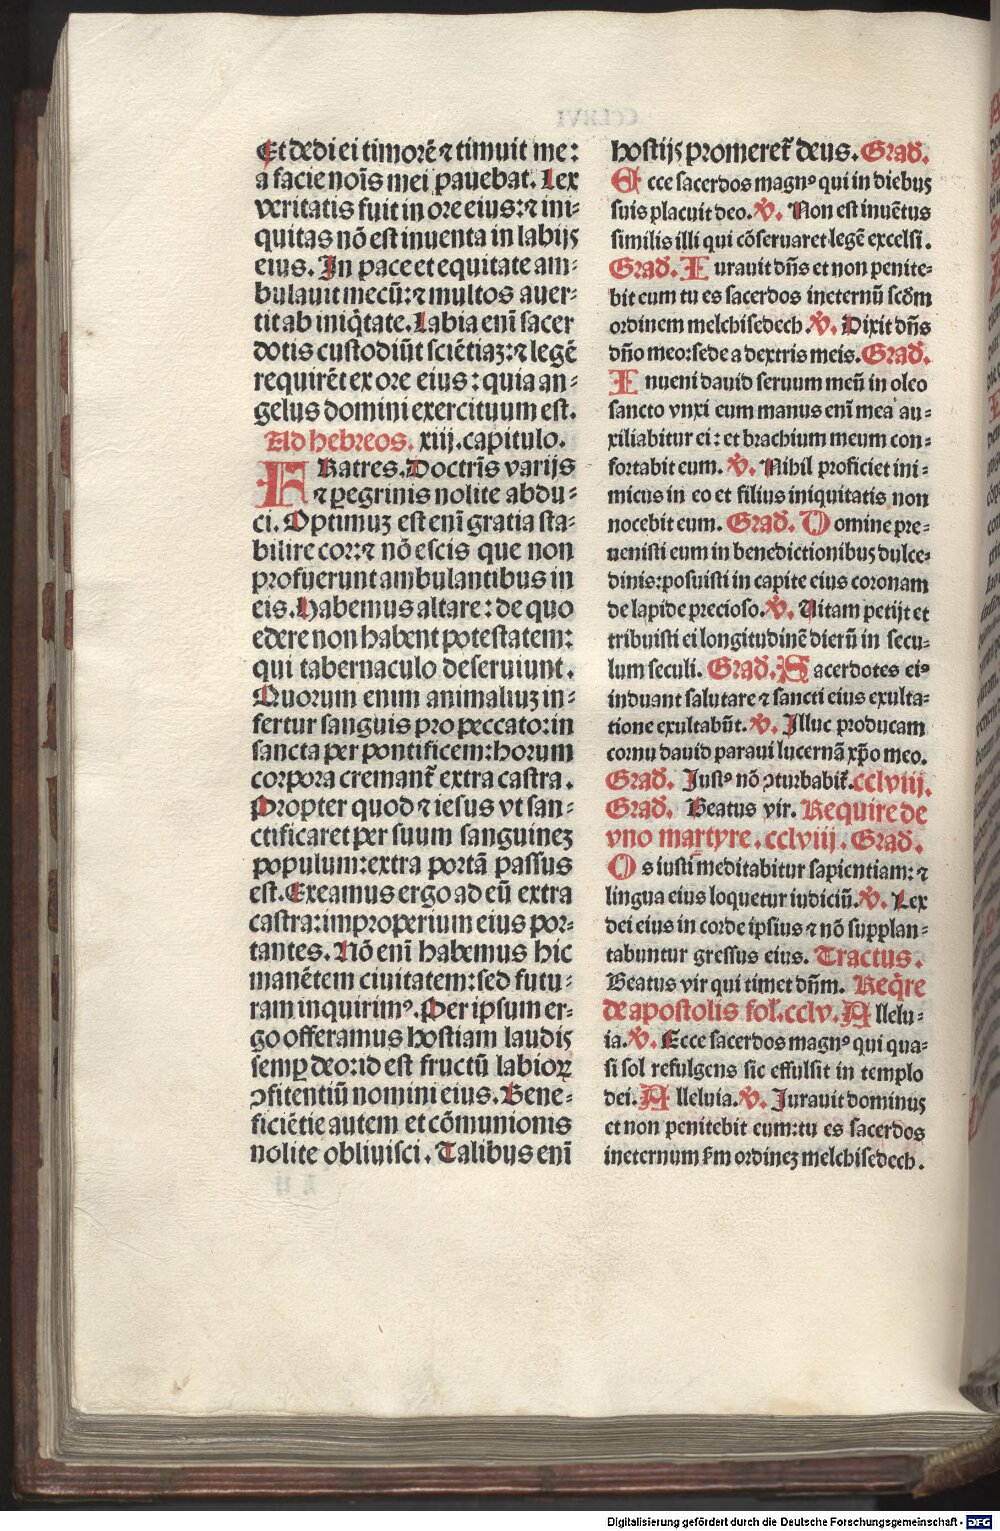 Et dedi ei timorē ⁊ timuit me:
a facie noīs mei pauebat. Lex
veritatis fuit in ore eius: ⁊ ini⸗
quitas nō est inuenta in labijs
eius. In pace et equitate am⸗
bulauit mecū: ⁊ multos auer⸗
tit ab iniq̄tate. Labia enī sacer
dotis custodiūt sciētiaꝫ: ⁊ legē
requirēt ex ore eius: quia an⸗
gelus domini exercituum est.
Ad hebreos. xiij. capitulo.
FRatres. Doctrīs varijs
⁊ ꝑegrinis nolite abdu⸗
ci. Optimuꝫ est enī gratia sta⸗
bilire cor: ⁊ nō escis que non
profuerunt ambulantibus in
eis. Habemus altare: de quo
edere non habent potestatem:
qui tabernaculo deseruiunt.
Quorum enim animaliuꝫ in⸗
fertur sanguis pro peccato: in
sancta per pontificem: horum
corpora cremant᷑ extra castra.
Propter quod ⁊ iesus vt san⸗
ctificaret per suum sanguineꝫ
populum: extra portā passus
est. Exeamus ergo ad eū extra
castra: improperium eius por⸗
tantes. Nō enī habemus hic
manētem ciuitatem: sed futu⸗
ram inquirimꝰ. Per ipsum er⸗
go offeramus hostiam laudis
semꝑ deo: id est fructū labioꝝ
ꝯfitentiū nomini eius. Bene⸗
ficiētie autem et cōmunionis
nolite obliuisci. Talibus enī
hostijs promeret᷑ deus. Grad̄.
Ecce sacerdos magnꝰ qui in diebus
suis placuit deo. ℣. Non est inuētus
similis illi qui cōseruaret legē excelsi.
Grad̄. Iurauit dn̄s et non penite⸗
bit eum tu es sacerdos ineternū scd̄m
ordinem melchisedech. ℣. Dixit dn̄s
dn̄o meo: sede a dextris meis. Grad̄.
Inueni dauid seruum meū in oleo
sancto vnxi eum manus enī mea au⸗
xiliabitur ei: et brachium meum con⸗
fortabit eum. ℣. Nihil proficiet ini⸗
micus in eo et filius iniquitatis non
nocebit eum. Grad̄. Domine pre⸗
uenisti eum in benedictionibus dulce⸗
dinis: posuisti in capite eius coronam
de lapide precioso. ℣. Uitam petijt et
tribuisti ei longitudinē dierū in secu⸗
lum seculi. Grad̄. Sacerdotes eiꝰ
induant salutare ⁊ sancti eius exulta⸗
tione exultabūt. ℣. Illuc producam
cornu dauid paraui lucernā xp̄o meo.
Grad̄. Justꝰ nō ꝯturbabit᷑. cclviij.
Grad̄. Beatus vir. Require de
vno martyre. cclviij. Grad̄.
Os iusti meditabitur sapientiam: ⁊
lingua eius loquetur iudiciū. ℣. Lex
dei eius in corde ipsius ⁊ nō supplan⸗
tabuntur gressus eius. Tractus.
Beatus vir qui timet dn̄m. Req̄re
de apostolis fol. cclv. Allelu⸗
ia. ℣. Ecce sacerdos magnꝰ qui qua⸗
si sol refulgens sic effulsit in templo
dei. Alleluia. ℣. Jurauit dominus
et non penitebit eum: tu es sacerdos
ineternum ẜm ordineꝫ melchisedech.
Digitalisierung gefördert durch die Deutsche Forschungsgemeinschaft - DFG